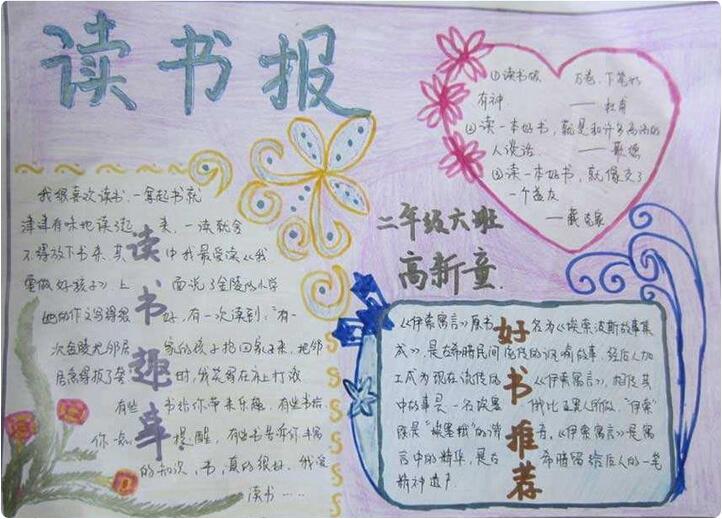 读书报
我很喜欢读书,一拿起书就
津津有味地读了起来,一读就会
不得放下书来,其中我最爱读《我
要做好孩子》上面说了金陵的小学
她的作文写得很好,有一次读到,"有一
次金陵把邻居家的孩子抱回家来,把邻
时,我笑得在床上打滚
有些书给你带来乐趣,有些书给
你一点提醒,有些书告诉你丰富
的知识,书,真的很好,我爱
读书……
读书趣事
①读书破万卷,下笔如
有神——杜甫
②读一本好书,就是和许多高尚的
人谈话——歌德
③读一本好书,就像交了
一个益友
——臧克家
二年级六班
高新童
好书推荐
《伊索寓言》原书名为《埃索波斯故事集
成》,是古希腊民间流传的讽喻故事,经后人加
工成为现在流传的《伊索寓言》,相传其
中故事是一名埃塞俄比亚黑人所做,"伊索"
既是"埃塞俄"的谐音。《伊索寓言》是寓
言中的精华,是古希腊留给后人的一笔
精神遗产